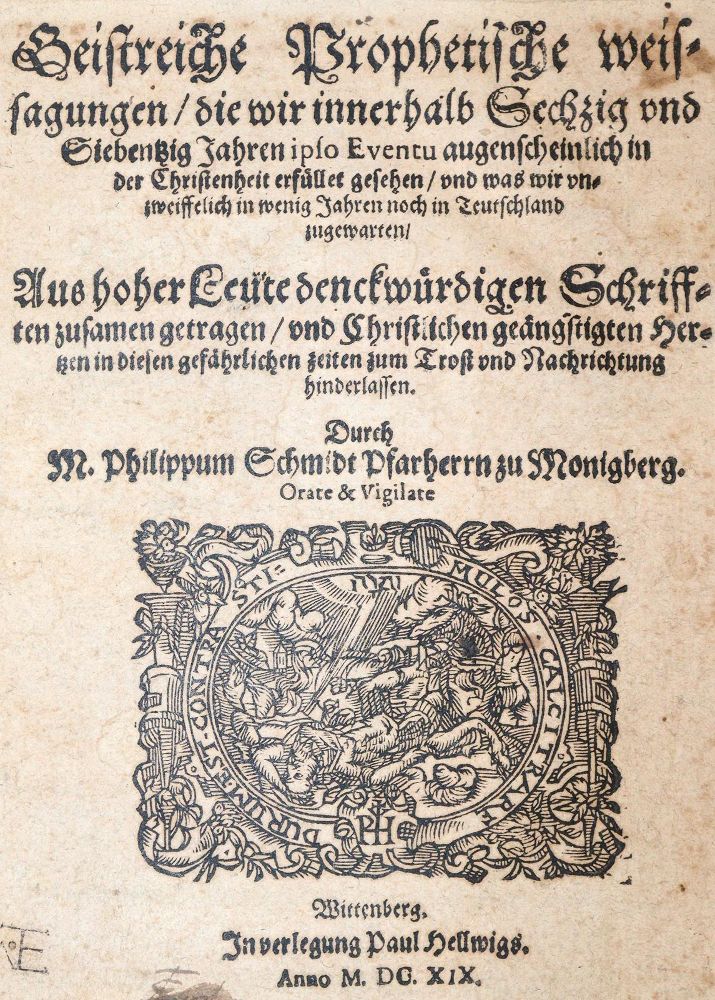 Geistreiche Prophetische weis-
sagungen / die wir innerhalb Sechzig vnd
Siebentzig Jahren ipso Eventu augenscheinlich in
der Christenheit erfüllet gesehen / vnd was wir vn-
zweiffelich in wenig Jahren noch in Teutschland
zugewarten /
Aus hoher Leute denckwürdigen Schriff-
ten zusamen getragen / vnd Christlichen geängstigten Her-
tzen in diesen gefährlichen zeiten zum Trost vnd Nachrichtung
hinderlassen.
Durch
M. Philippum Schmidt Pfarherrn zu Monigberg.
Orate & Vigilate
DURUM EST CONTRA STI-MULOS CALCITRARE
PH
Wittenberg.
In verlegung Paul Hellwigs.
Anno M. DC. XIX.